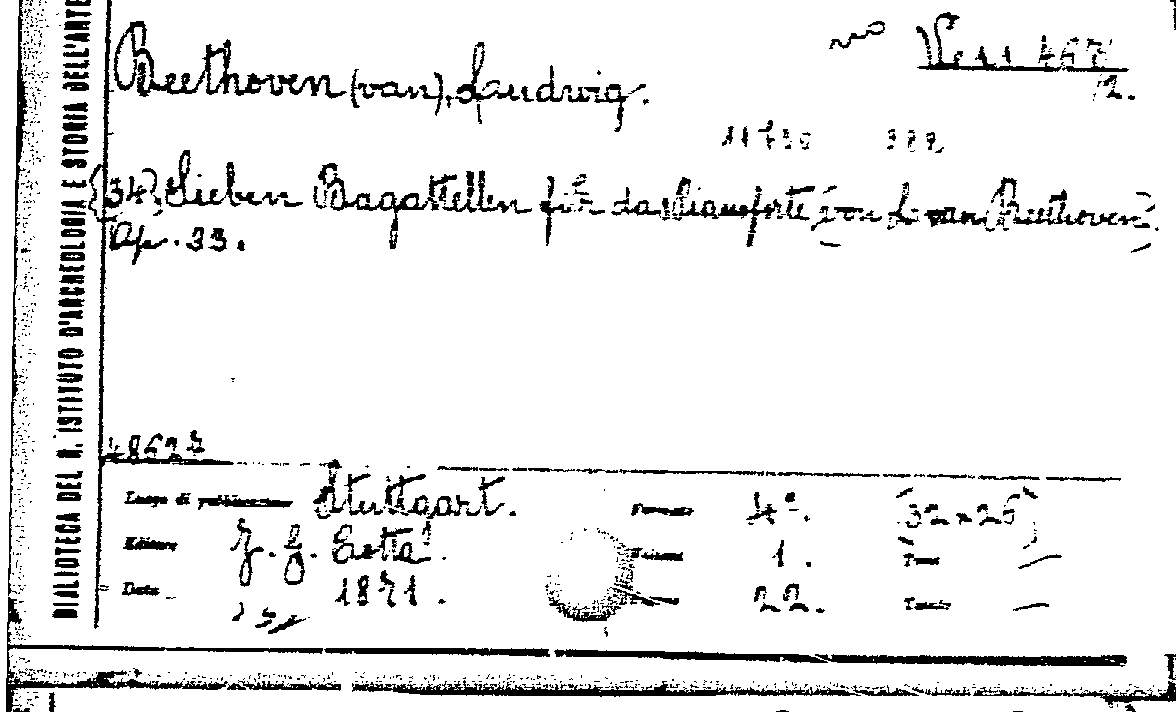 BIALIOTECA DEL R. ISTITUTO D'ARCHEOLOGIA E STORIA DELL'ARTE
Beethoven (van), Laudwig.
12.
(34) Sieben Bagattellen für das Pianoforte (von L. van Beethoven)
Op. 33.
48627
Luogo di Stuttgart. Formato 4°. (32 x 26)
Editore J. G. Cotta. Volumi 1. Tomi —
Data 1871. 22. Tavole —